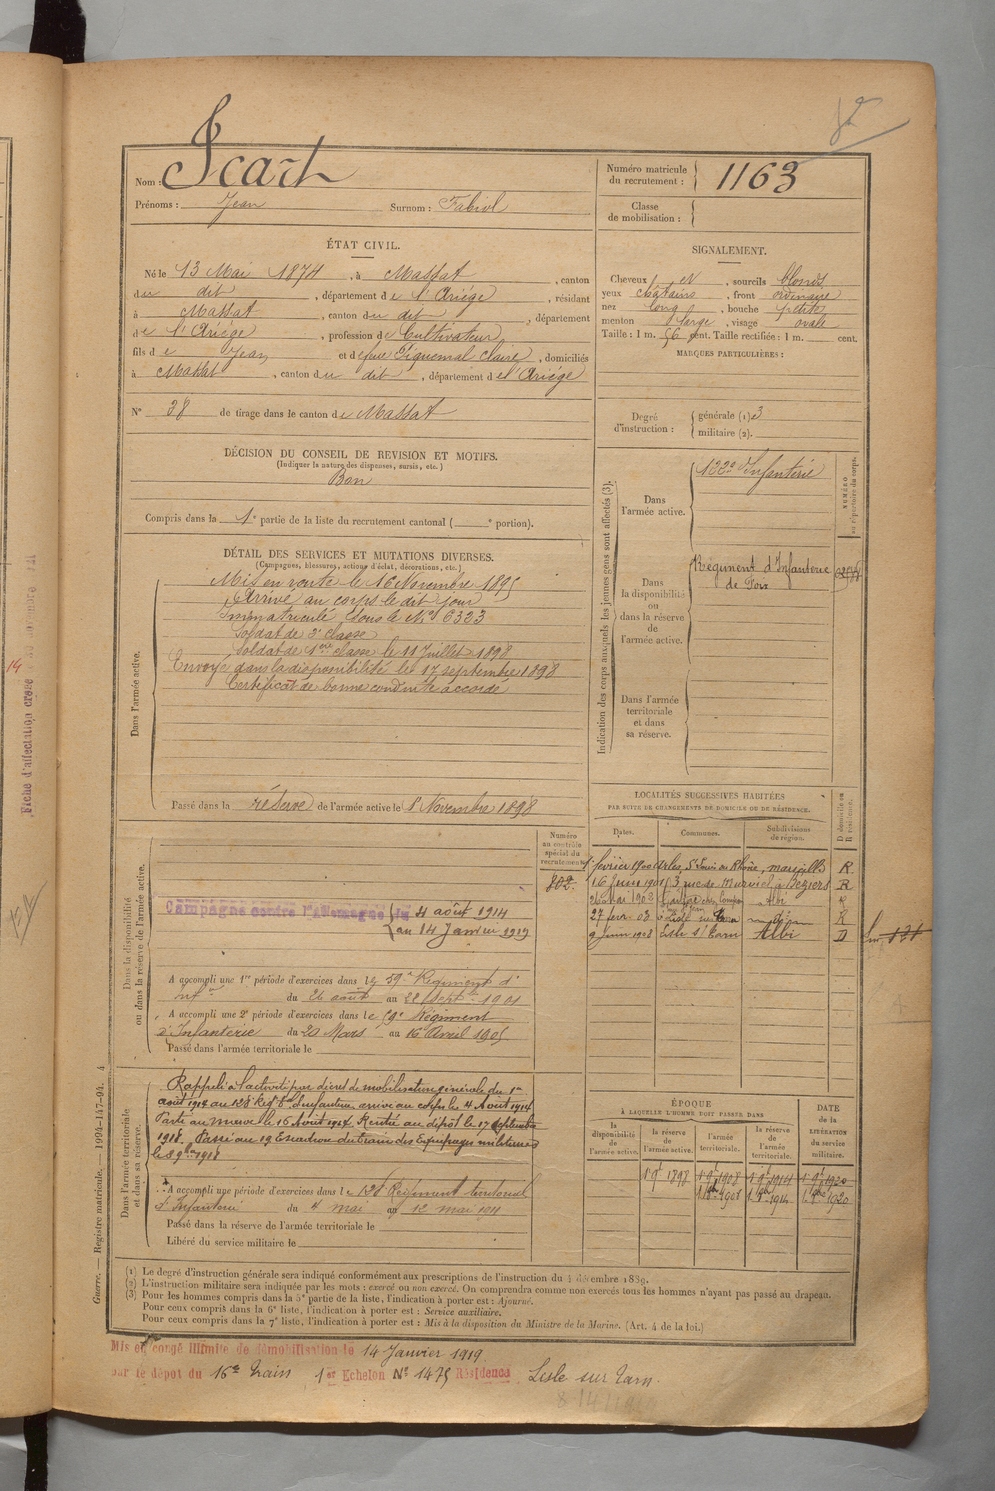 Nom : Icart
Prénoms : Jean Surnom : Fabiol
Numéro matricule du recrutement : 1163
Classe de mobilisation :
ÉTAT CIVIL.
Né le 13 Mai 1874, à Massat, canton
du dit, département de l'Ariége, résidant
à Massat, canton du dit, département
de l'Ariége, profession de Cultivateur
fils de Jean et de feue Piquemal Claire, domiciliés
à Massat, canton du dit, département de l'Ariége
N° 38 de tirage dans le canton de Massat
SIGNALEMENT.
Cheveux et, sourcils blonds
yeux chatains, front ordinaire
nez long, bouche petite
menton large, visage ovale
Taille : 1 m. 56 cent. Taille rectifiée : 1 m. cent.
MARQUES PARTICULIÈRES :
Degré d'instruction : générale (1) 3
militaire (2).
DÉCISION DU CONSEIL DE REVISION ET MOTIFS.
(Indiquer la nature des dispenses, sursis, etc.)
Bon
Compris dans la 1e partie de la liste du recrutement cantonal ( e portion).
DÉTAIL DES SERVICES ET MUTATIONS DIVERSES.
(Campagnes, blessures, actions d'éclat, décorations, etc.)
Dans l'armée active.
Mis en route le 16 Novembre 1895
Arrivé au corps le dit jour
Immatriculé sous le N° 6323
Soldat de 2e classe
Soldat de 1ère classe le 11 Juillet 1898
Envoyé dans la disponibilité le 17 septembre 1898
Certificat de bonne conduite accordé
Passé dans la réserve de l'armée active le 1er Novembre 1898
Indication des corps auxquels les jeunes gens sont affectés (3).
NUMÉRO au répertoire du corps.
Dans l'armée active.
122e d'Infanterie
Dans la disponibilité ou dans la réserve de l'armée active.
Régiment d'Infanterie
de Foix
Dans l'armée territoriale et dans sa réserve.
LOCALITÉS SUCCESSIVES HABITÉES
PAR SUITE DE CHANGEMENTS DE DOMICILE OU DE RÉSIDENCE.
Dates. Communes. Subdivisions de région. D domicile ou R résidence.
1er février 1900 Arles, St Louis du Rhône, marseille R
16 Juin 1901 3 rue de Murviel à Béziers R
26 Mai 1903 Albi R
27 févr 03 Lisle R
9 juin 1908 Lisle s/ Tarn Albi D
Numéro au contrôle spécial du recrutement
802
Dans la disponibilité ou dans la réserve de l'armée active.
Campagne contre l'Allemagne du 4 août 1914
au 14 Janvier 1919
A accompli une 1re période d'exercices dans le 59e Régiment d'
inf du 26 août au 22 Sept 1901
A accompli une 2e période d'exercices dans le 59e Régiment
d'Infanterie du 20 Mars au 16 Avril 1905
Passé dans l'armée territoriale le
Dans l'armée territoriale et dans sa réserve.
Rappelé à l'activité par décret de mobilisation générale du 1er
août 1914 au 128e Régt d'Infanterie arrivé au corps le 4 Août 1914
Parti au Maroc le 16 Août 1914. Rentré au dépôt le 17 septembre
1918. Passé au 19 Escadron du Train des Equipages militaires
A accompli une période d'exercices dans le 128 Régiment territorial
d'Infanterie du 4 mai au 12 mai 1911
Passé dans la réserve de l'armée territoriale le
Libéré du service militaire le
ÉPOQUE
À LAQUELLE L'HOMME DOIT PASSER DANS
DATE DE LA LIBÉRATION du service militaire.
la disponibilité de l'armée active. la réserve de l'armée active. l'armée territoriale. la réserve de l'armée territoriale.
1 9b 1898 1 9b 1908 1 9b 1914 1 9b 1920
(1) Le degré d'instruction générale sera indiqué conformément aux prescriptions de l'instruction du 4 décembre 1889.
(2) L'instruction militaire sera indiquée par les mots : exercé ou non exercé. On comprendra comme non exercés tous les hommes n'ayant pas passé au drapeau.
(3) Pour les hommes compris dans la 5e partie de la liste, l'indication à porter est : Ajourné.
Pour ceux compris dans la 6e liste, l'indication à porter est : Service auxiliaire.
Pour ceux compris dans la 7e liste, l'indication à porter est : Mis à la disposition du Ministre de la Marine. (Art. 4 de la loi.)
Guerre. — Registre matricule. — 1994-147-94. 4
Mis en congé illimité de démobilisation le 14 Janvier 1919
par le dépôt du 16e Train 1er Echelon N° 1475 Résidence Lisle sur Tarn.